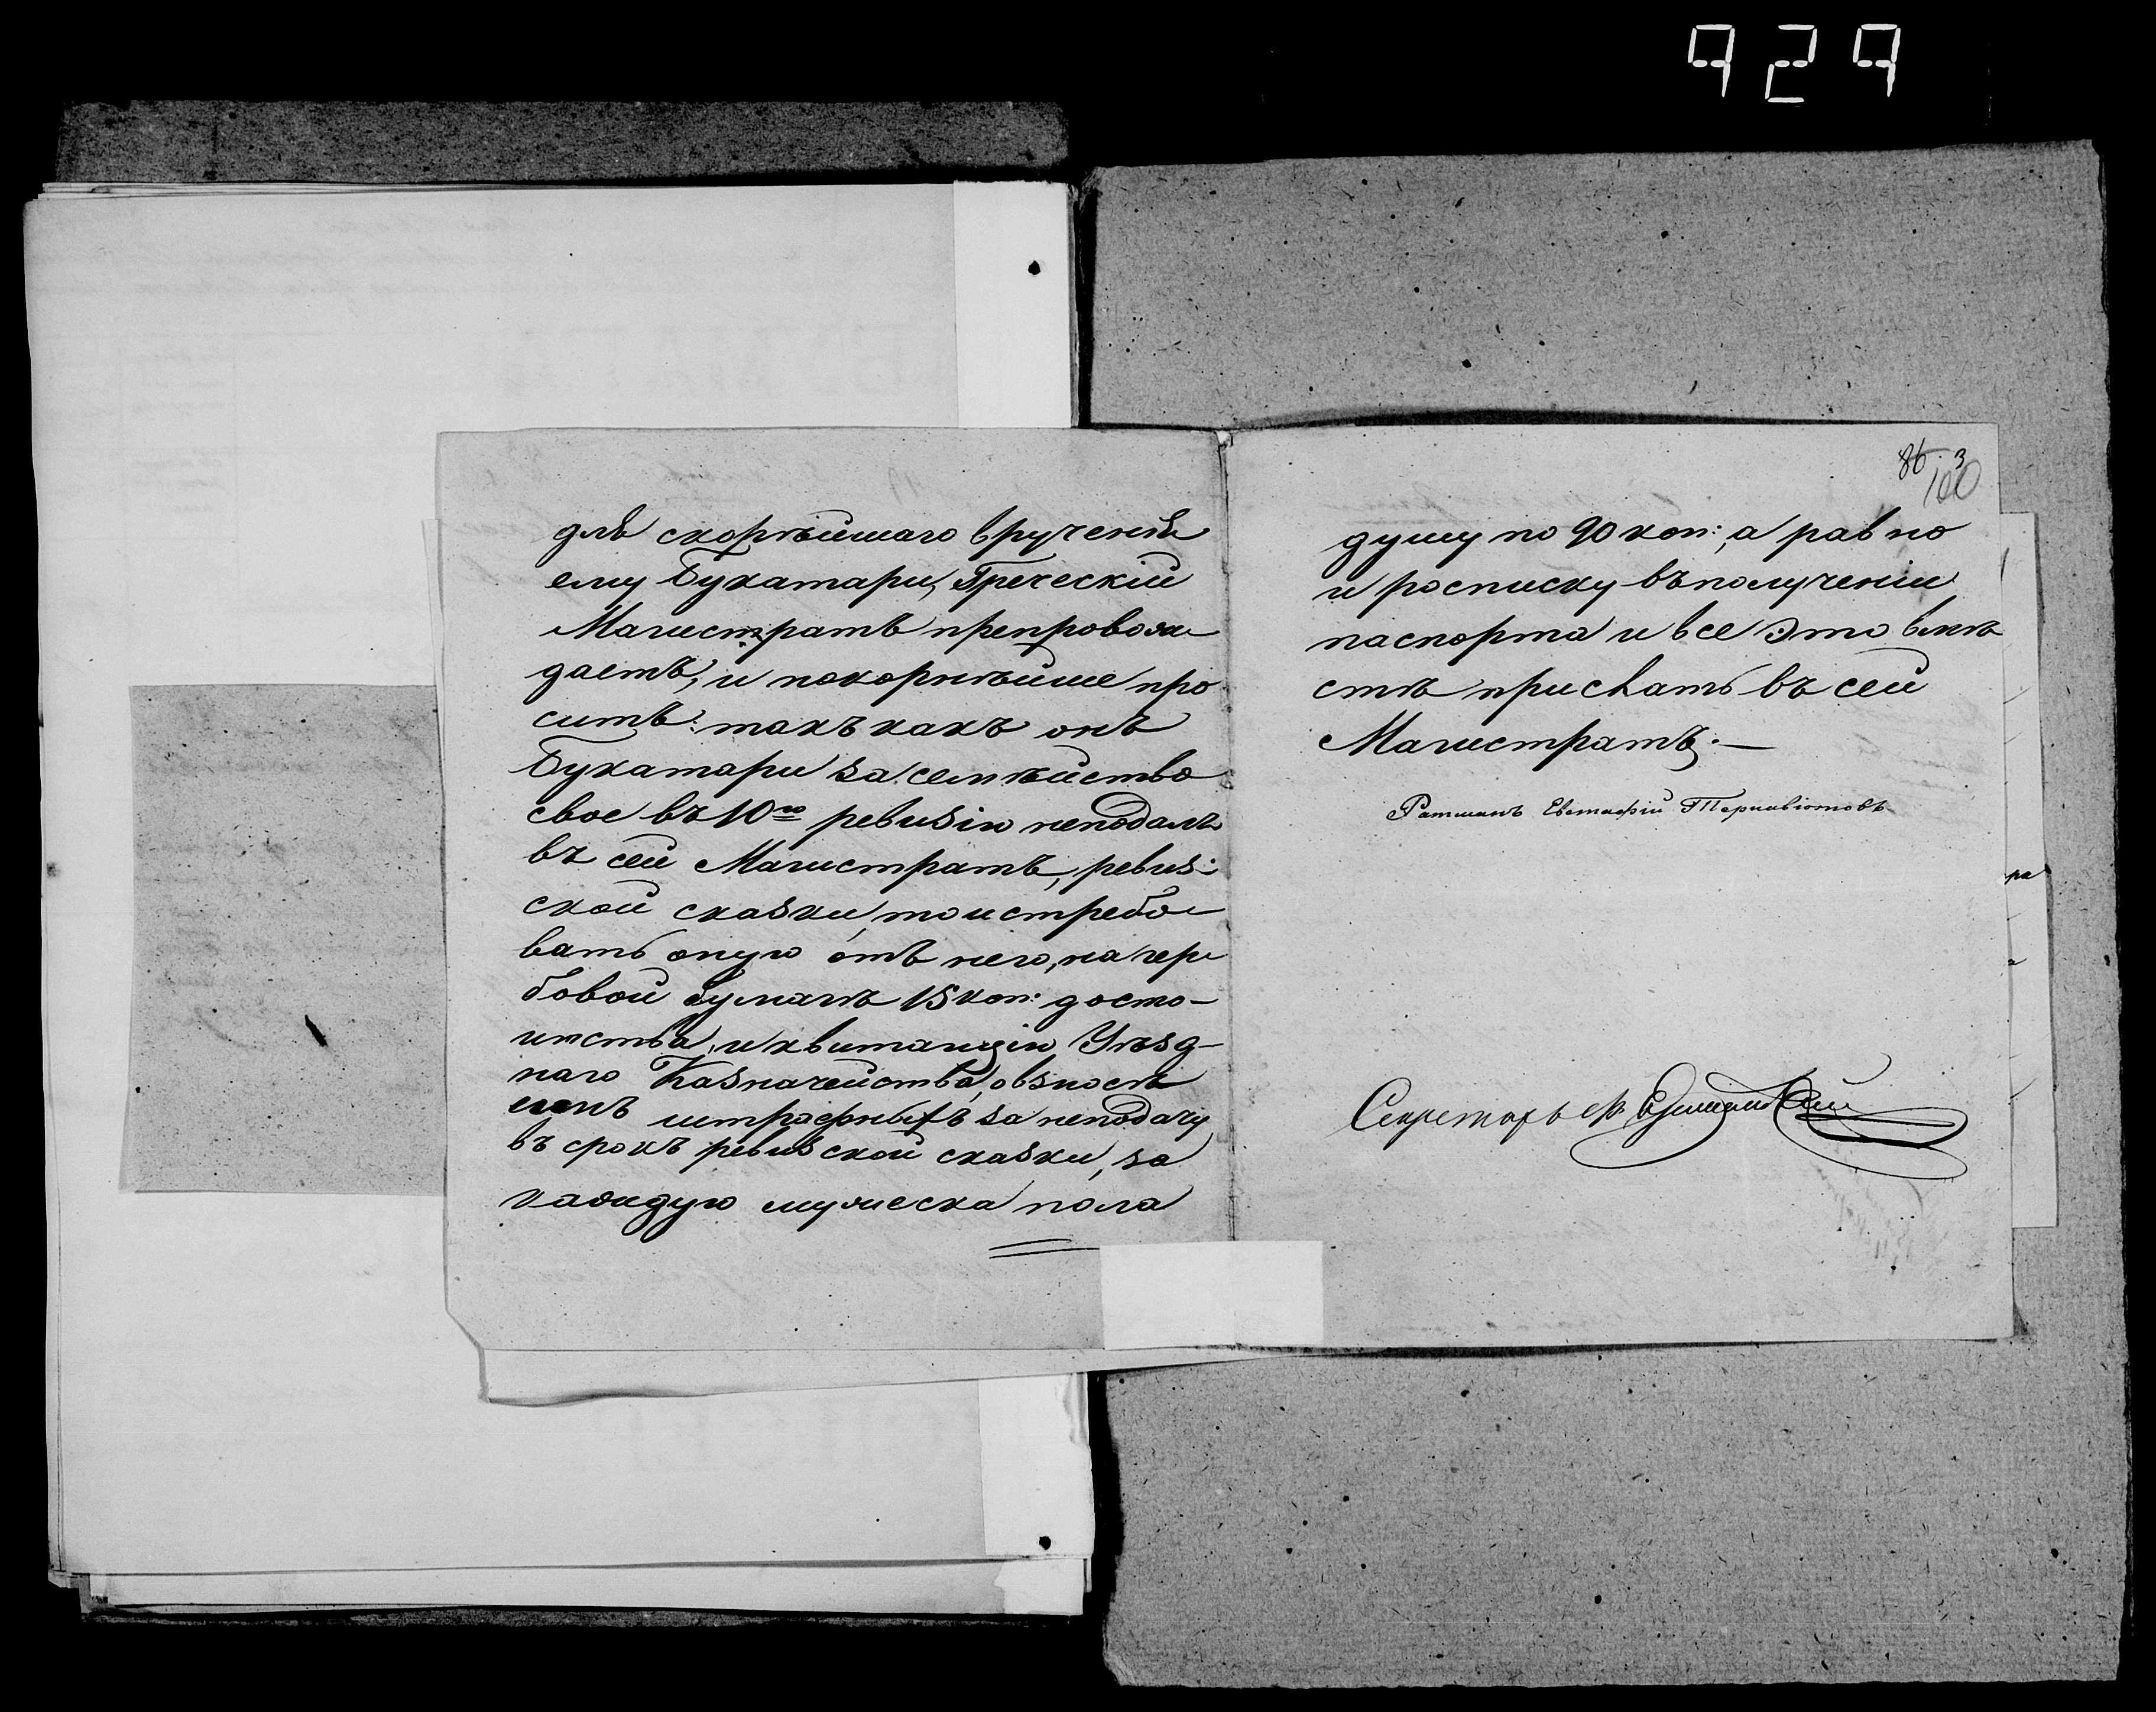 929
для скорѣйшаго врученія
ему Букатари, Греческій
Магистратъ препровож
даетъ, и покорнѣйше про
ситъ: такъ какъ онъ
Букатари за семѣйство
свое въ 10ю ревизію неподалъ
въ сей Магистратъ, ревиз:
ской сказки, то истребо
вать оную отъ него, на гер
бовой бумагѣ 15 коп: досто-
инства, и квитанцію Уѣзд-
наго Казначейства, о взносѣ
имъ штрафныхъ за неподачу
въ срокъ ревизской сказки, за
каждую мужеска пола
86 3
100
душу по 90 коп:, а равно
и росписку въ полученіи
паспорта и все это вмѣ
стѣ прислать въ сей
Магистратъ.—
Ратманъ Евстафій
Секретарь
ра